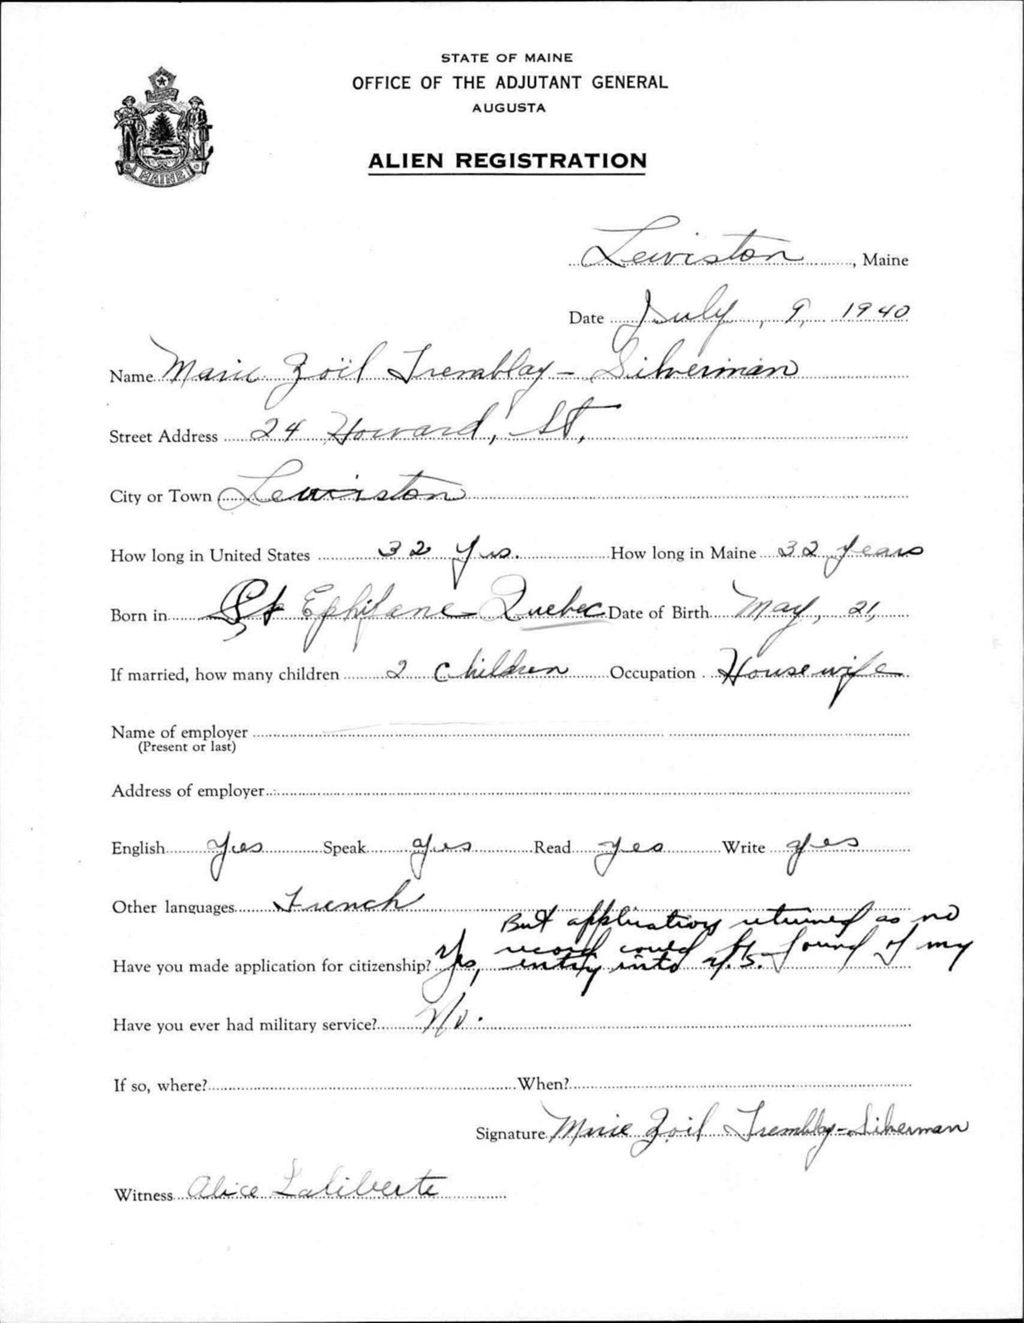 STATE OF MAINE
OFFICE OF THE ADJUTANT GENERAL
AUGUSTA
ALIEN REGISTRATION
MAINE
Lewiston, Maine
Date July, 9, 1940
Name Marie Zoïl Tremblay - Silverman
Street Address 24 Howard, St,
City or Town Lewiston
How long in United States 32 yrs. How long in Maine 32 years
Born in St Ephifane - Quebec Date of Birth May, 21,
If married, how many children 2 children Occupation Housewife
Name of employer
(Present or last)
Address of employer
English Yes Speak yes Read yes Write yes
Other languages French
But application returned as no
record could be found of my
Have you made application for citizenship? Yes, entry into U.S.
Have you ever had military service? No.
If so, where? When?
Signature Marie Zoil Tremblay - Silverman
Witness Alice Laliberte